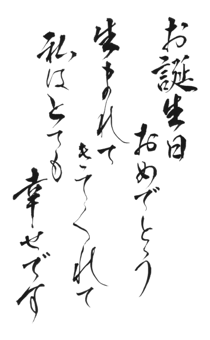 お誕生日
おめでとう
生まれて
きてくれて
私はとても
幸せです